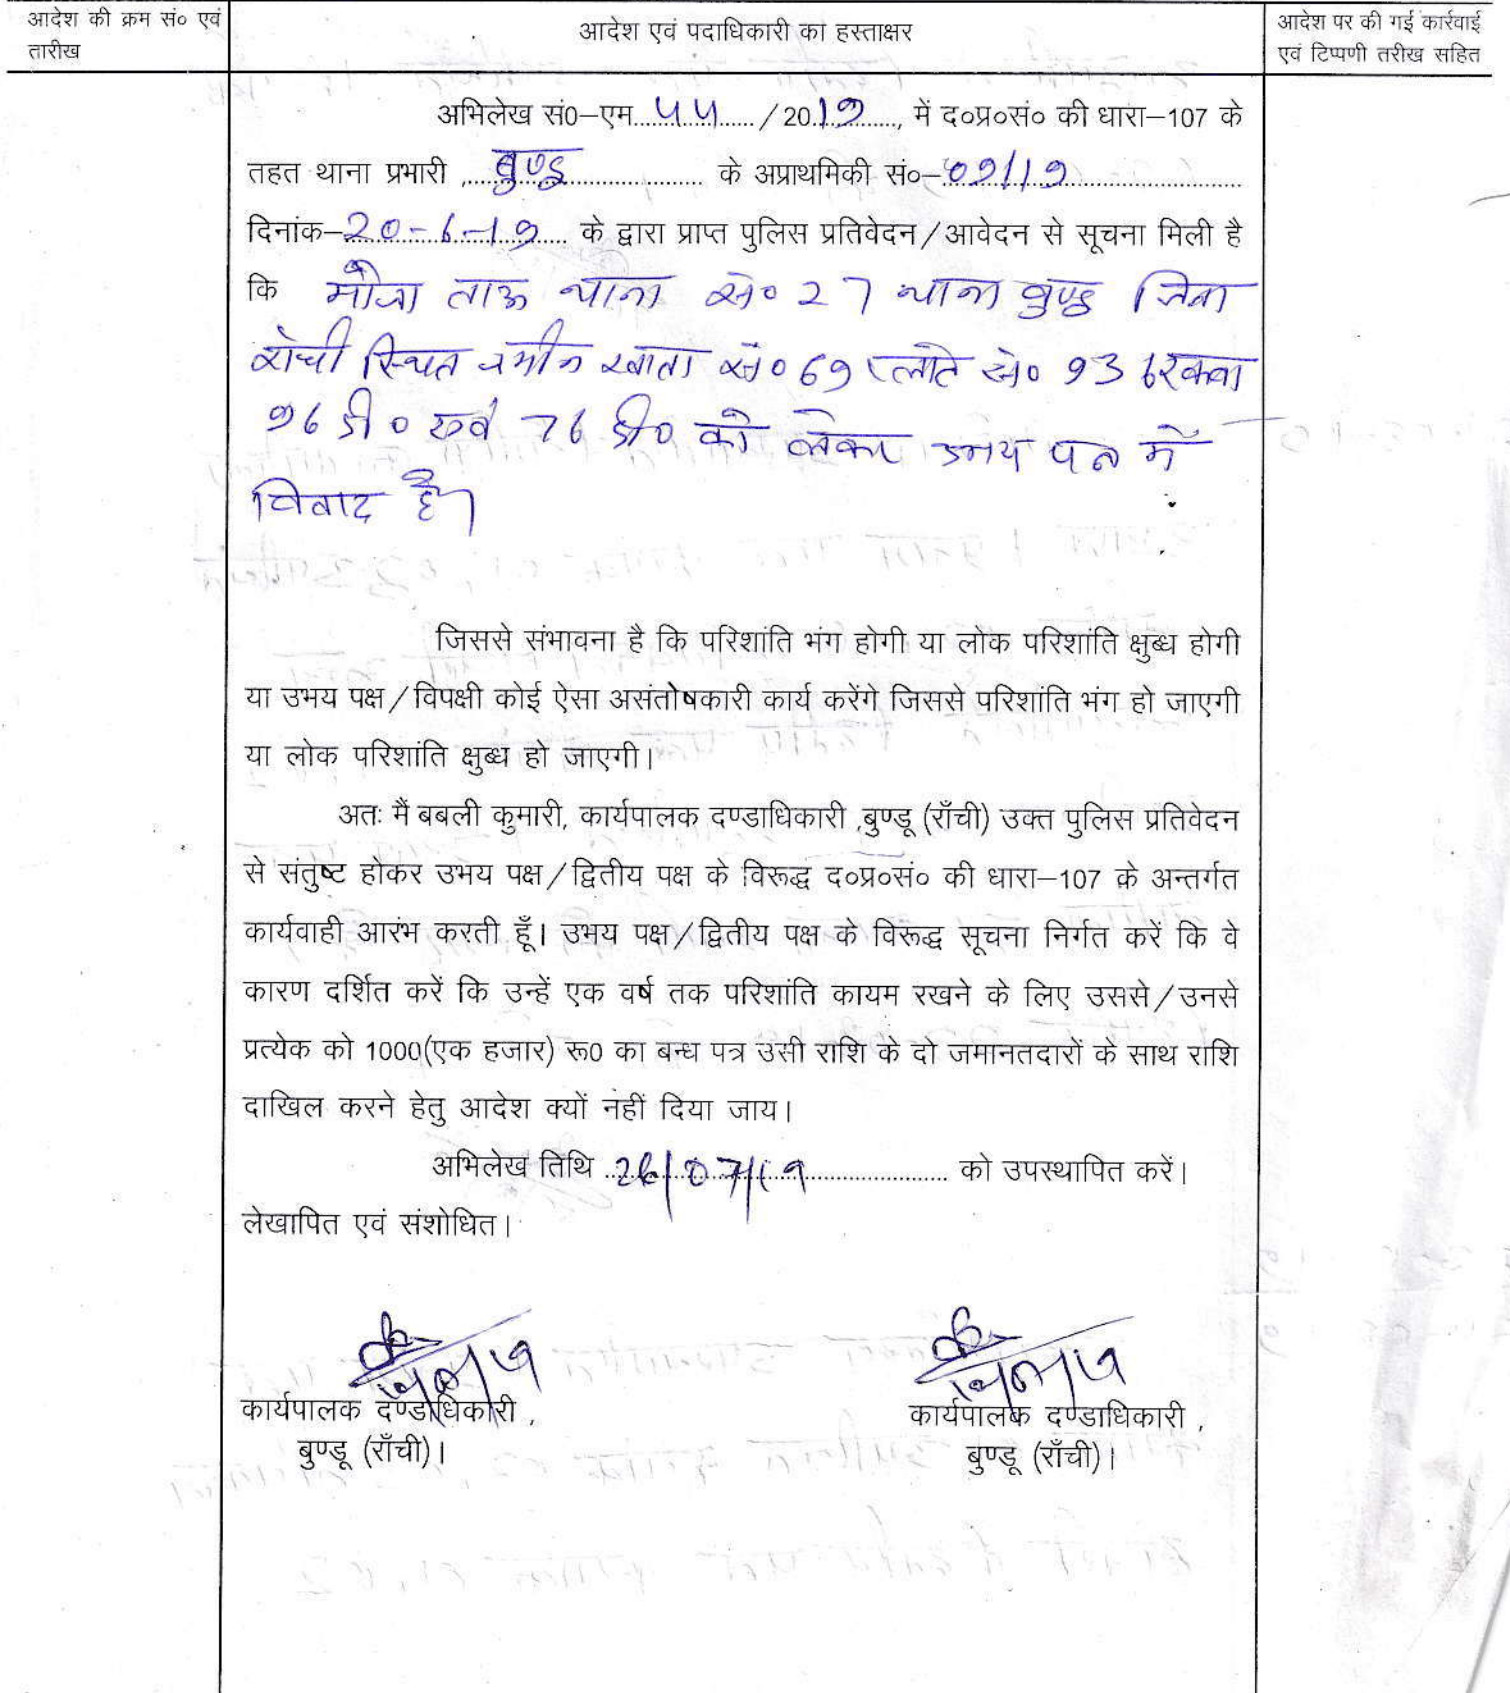 आदेश की क्रम सं० एवं
तारीख
आदेश एवं पदाधिकारी का हस्ताक्षर
आदेश पर की गई कार्रवाई
एवं टिप्पणी तरीख सहित
अभिलेख सं0–एम..५५../20.19.., में द०प्र०सं० की धारा–107 के
तहत थाना प्रभारी ,..बुण्डू.. के अप्राथमिकी सं०–..09/19..
दिनांक–..20-6-19.. के द्वारा प्राप्त पुलिस प्रतिवेदन/आवेदन से सूचना मिली है
कि मौजा ताऊ थाना सं० 27 थाना बुण्डू जिला
राँची स्थित जमीन खाता सं० 69 प्लोट सं० 936 रकवा
96 डी० एवं 76 डी० को लेकर उभय पक्ष में
विवाद है।
जिससे संभावना है कि परिशांति भंग होगी या लोक परिशांति क्षुब्ध होगी
या उभय पक्ष/विपक्षी कोई ऐसा असंतोषकारी कार्य करेंगे जिससे परिशांति भंग हो जाएगी
या लोक परिशांति क्षुब्ध हो जाएगी।
अतः मैं बबली कुमारी, कार्यपालक दण्डाधिकारी ,बुण्डू (राँची) उक्त पुलिस प्रतिवेदन
से संतुष्ट होकर उभय पक्ष/द्वितीय पक्ष के विरूद्ध द०प्र०सं० की धारा–107 के अन्तर्गत
कार्यवाही आरंभ करती हूँ। उभय पक्ष/द्वितीय पक्ष के विरूद्ध सूचना निर्गत करें कि वे
कारण दर्शित करें कि उन्हें एक वर्ष तक परिशांति कायम रखने के लिए उससे/उनसे
प्रत्येक को 1000(एक हजार) रू0 का बन्ध पत्र उसी राशि के दो जमानतदारों के साथ राशि
दाखिल करने हेतु आदेश क्यों नहीं दिया जाय।
अभिलेख तिथि ..26/07/19.. को उपस्थापित करें।
लेखापित एवं संशोधित।
कार्यपालक दण्डाधिकारी ,
बुण्डू (राँची)।
कार्यपालक दण्डाधिकारी ,
बुण्डू (राँची)।